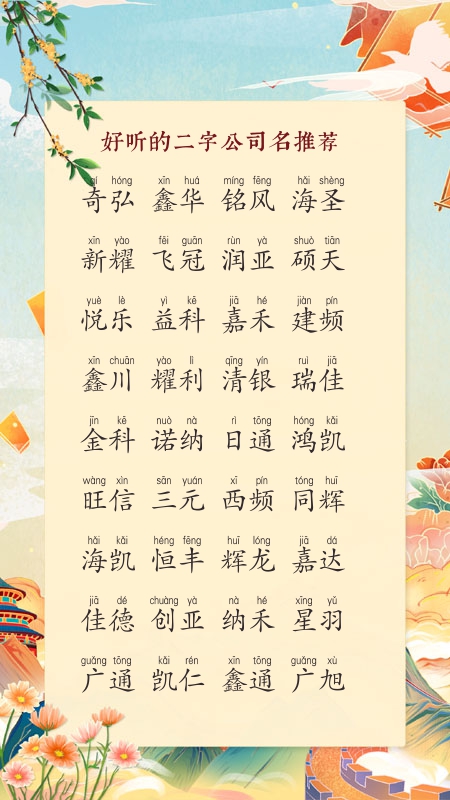 好听的二字公司名推荐
qí hóng xīn huá míng fēng hǎi shèng
奇弘 鑫华 铭风 海圣
xīn yào fēi guān rùn yà shuò tiān
新耀 飞冠 润亚 硕天
yuè lè yì kē jiā hé jiàn pín
悦乐 益科 嘉禾 建频
xīn chuān yào lì qīng yín ruì jiā
鑫川 耀利 清银 瑞佳
jīn kē nuò nà rì tōng hóng kǎi
金科 诺纳 日通 鸿凯
wàng xìn sān yuán xī pín tóng huī
旺信 三元 西频 同辉
hǎi kǎi héng fēng huī lóng jiā dá
海凯 恒丰 辉龙 嘉达
jiā dé chuàng yà nà hé xīng yǔ
佳德 创亚 纳禾 星羽
guǎng tōng kǎi rén xīn tōng guǎng xù
广通 凯仁 鑫通 广旭